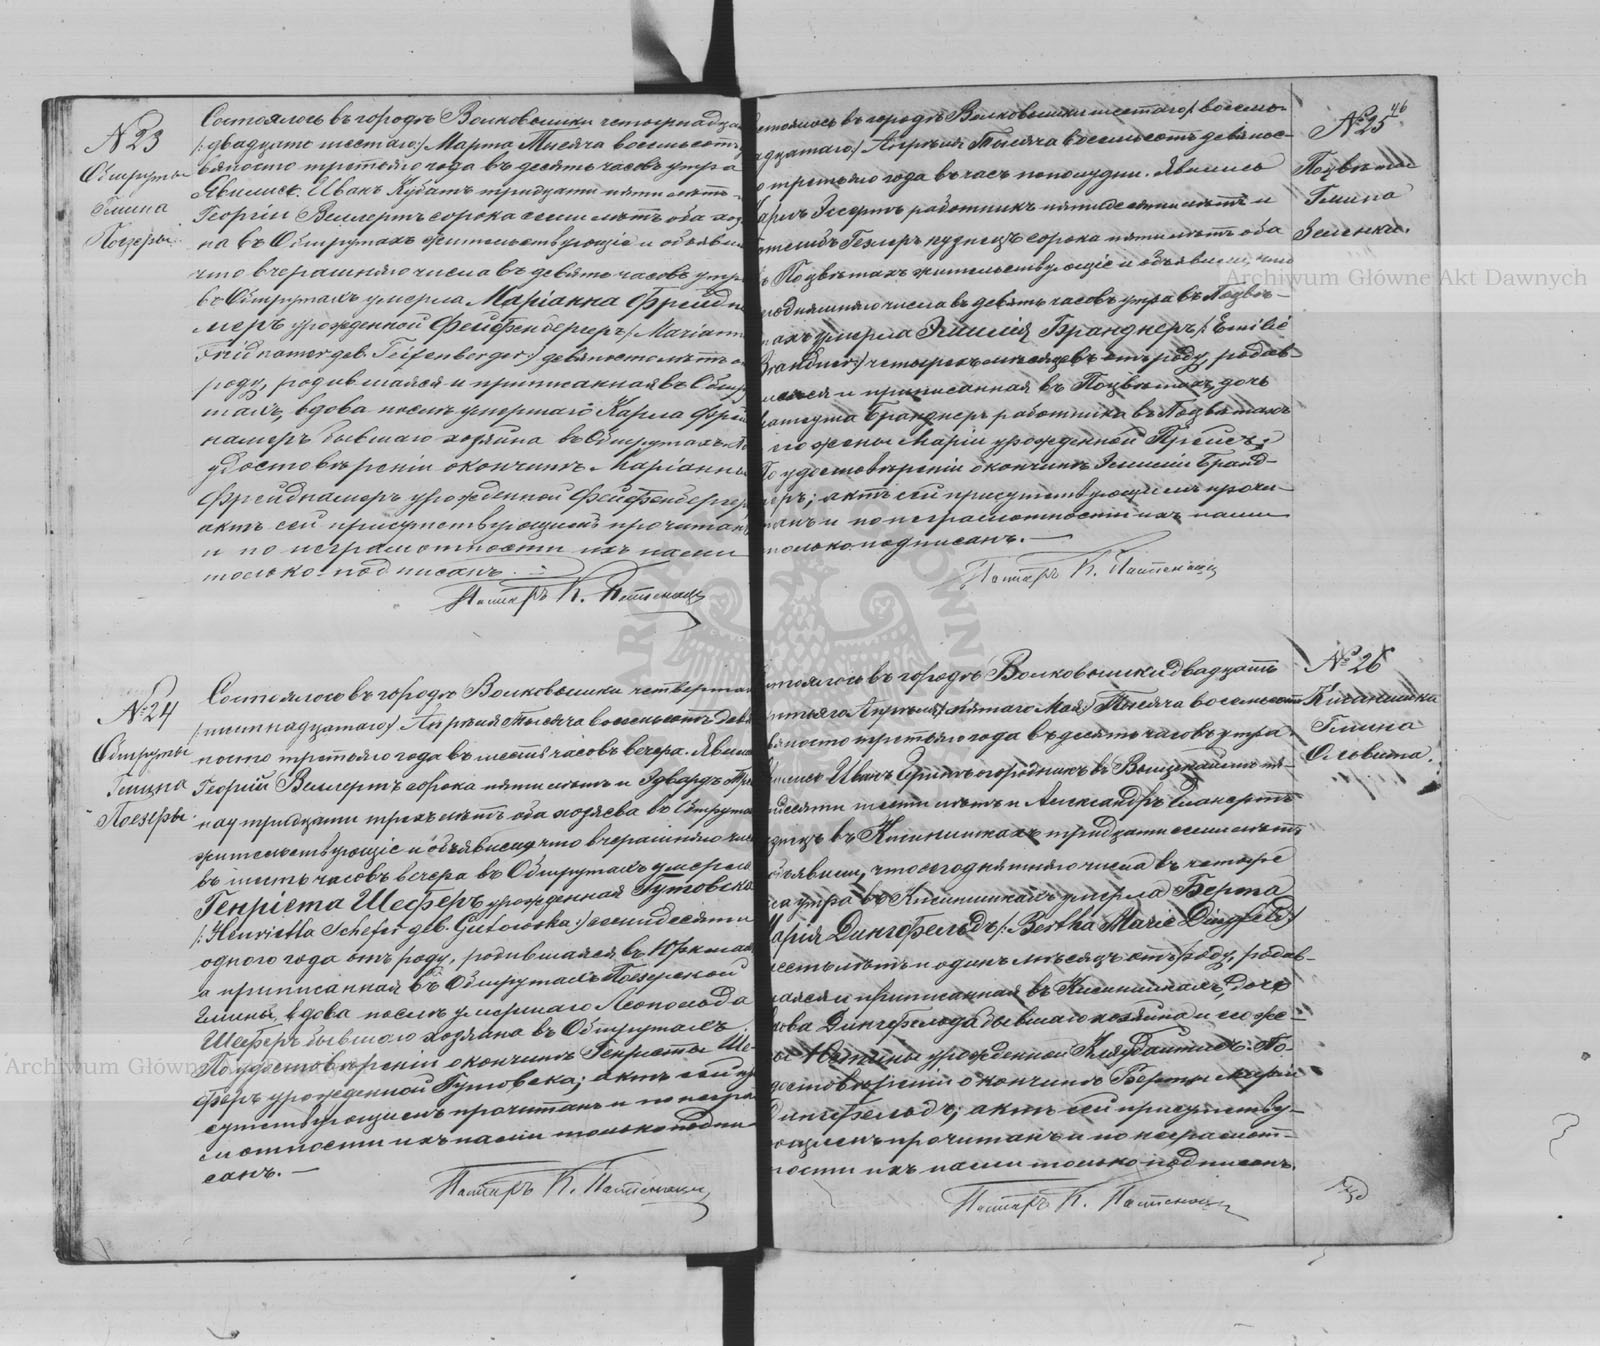 №23
Обшруты
Гмина
Поезеры
Состоялось въ городѣ Волковышки четырнадца
/:двадцать шестаго:/ Марта Тысяча восемьсотъ
вяносто третьяго года въ десять часовъ утра
Явились Иванъ Кубатъ тридцати пяти лѣтъ
Георгіи Веллертъ сорока семи лѣтъ оба хоз
на въ Обшрутахъ жительствующіе и объяви
что вчерашняго числа въ девять часовъ утра
въ Обшрутахъ умерла Маріанна Фрейдна
меръ урожденной Фейфенбергеръ /:Mariann
Fridnamer geb. Feifenberger:/ девяносто лѣтъ о
роду, родившаяся и приписанная въ Обшру
тахъ, вдова послѣ умершаго Карла Фрей
намеръ бывшаго хозяина въ Обшрутахъ. По
удостовѣреніи о кончинѣ Маріанны
Фрейднамеръ урожденной Фейфенбергеръ
актъ сей присутствующимъ прочитанъ
и по неграмотности ихъ нами
только подписанъ.
Пасторъ К.
№24
Обшруты
Гмина
Поезеры
Состоялось въ городѣ Волковышки четвертаго
/:шестнадцатаго:/ Апрѣля Тысяча восемьсотъ девя
носто третьяго года въ шесть часовъ вечера. Явили
Георгій Веллертъ сорока пяти лѣтъ и Эдвардъ
нау тридцати трехъ лѣтъ оба хозяева въ Обшрута
жительствующіе и объявили что вчерашняго чис
въ шесть часовъ вечера въ Обшрутахъ умерла
Генріета Шеферъ урожденная Гутовска
/:Henrietta Schefer geb. Gutowska:/ восмидесяти
одного года отъ роду, родившаяся въ
а приписанная въ Обшрутахъ Поезерской
Гмины, вдова послѣ умершаго Леопольда
Шеферъ бывшаго хозяина въ Обшрутахъ
По удостовѣреніи о кончинѣ Генріеты Ше
феръ урожденной Гутовска; актъ сей при
сутствующимъ прочитанъ и по негра
мотности ихъ нами только подпи
санъ.
Пасторъ К.
46
№25
Гмина
Зеленки.
стоялось въ городѣ Волковышки шестаго /:восемь
адцатаго:/ Апрѣля Тысяча восемьсотъ девянос
о третьяго года въ часъ пополудни. Явились
арлъ работникъ пятидесяти лѣтъ и
отлибъ Гехлеръ кузнецъ сорока пяти лѣтъ оба
ъ Подвѣтахъ жительствующіе и объявили, что
годняшняго числа въ девять часовъ утра въ Подвѣ
тахъ умерла Эмилія Бранднеръ /:Emilie
Brandner:/ четырехъ мѣсяцевъ отъ роду, родив
шаяся и приписанная въ Подвѣтахъ, дочь
Бранднеръ работника въ Подвѣтахъ
его жены Маріи урожденной Прейсъ.
По удостовѣреніи о кончинѣ Эмиліи Бранд
неръ; актъ сей присутствующимъ прочи
танъ и по неграмотности ихъ нами
только подписанъ.
Пасторъ К.
№26
Кисинишки
Гмина
Ольвита.
стоялось въ городѣ Волковышки двадцать
третьяго Апрѣля /:пятаго Мая:/ Тысяча восемьсотъ
вяносто третьяго года въ десять часовъ утра
вились Иванъ огородникъ въ пя
десяти шести лѣтъ и Александръ
въ Кисинишкахъ тридцати семи лѣтъ
объявили, что сегодняшняго числа въ четыре
са утра въ Кисинишкахъ умерла Берта
Марія Дингфельдъ /:Bertha Marie Dingfeld:/
шесть лѣтъ и одинъ мѣсяцъ отъ роду, родив
шаяся и приписанная въ Кисинишкахъ, дочь
Дингфельда бывшаго хозяина и его же
ны Юстины урожденной По
удостовѣреніи о кончинѣ Берты Маріи
Дингфельдъ; актъ сей присутству
ющимъ прочитанъ и по неграмот
ности ихъ нами только подписанъ.
Пасторъ К.
Archiwum Główne Akt Dawnych
Archiwum Główne Akt Dawnych